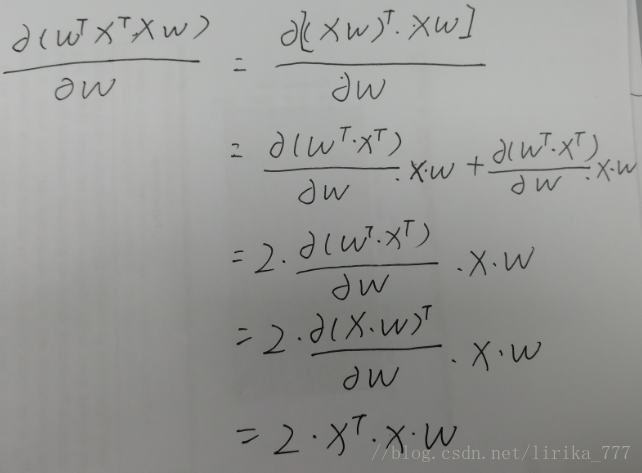 ∂(WᵀXᵀ·XW)/∂W = ∂[(XW)ᵀ·XW]/∂W
= ∂(Wᵀ·Xᵀ)/∂W ·X·W + ∂(Wᵀ·Xᵀ)/∂W ·X·W
= 2·∂(Wᵀ·Xᵀ)/∂W ·X·W
= 2·∂(X·W)ᵀ/∂W ·X·W
= 2·Xᵀ·X·W
//blog.csdn.net/lirika_777